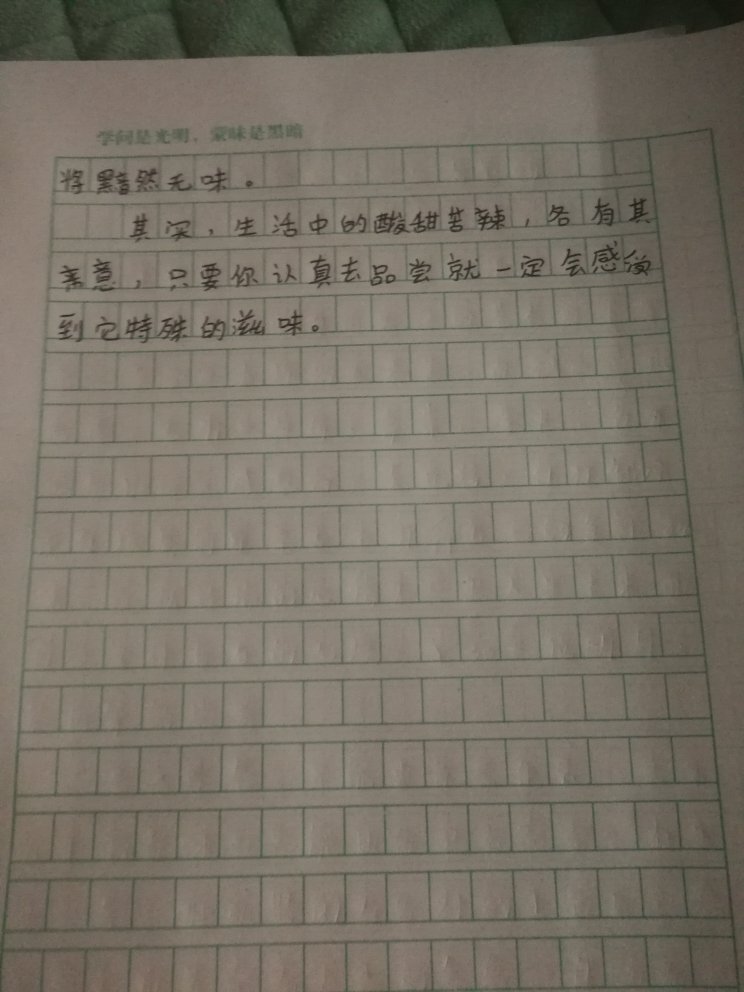 学问是光明，蒙昧是黑暗
将黯然无味。
其实，生活中的酸甜苦辣，各有其
亲意，只要你认真去品尝就一定会感受
到它特殊的滋味。